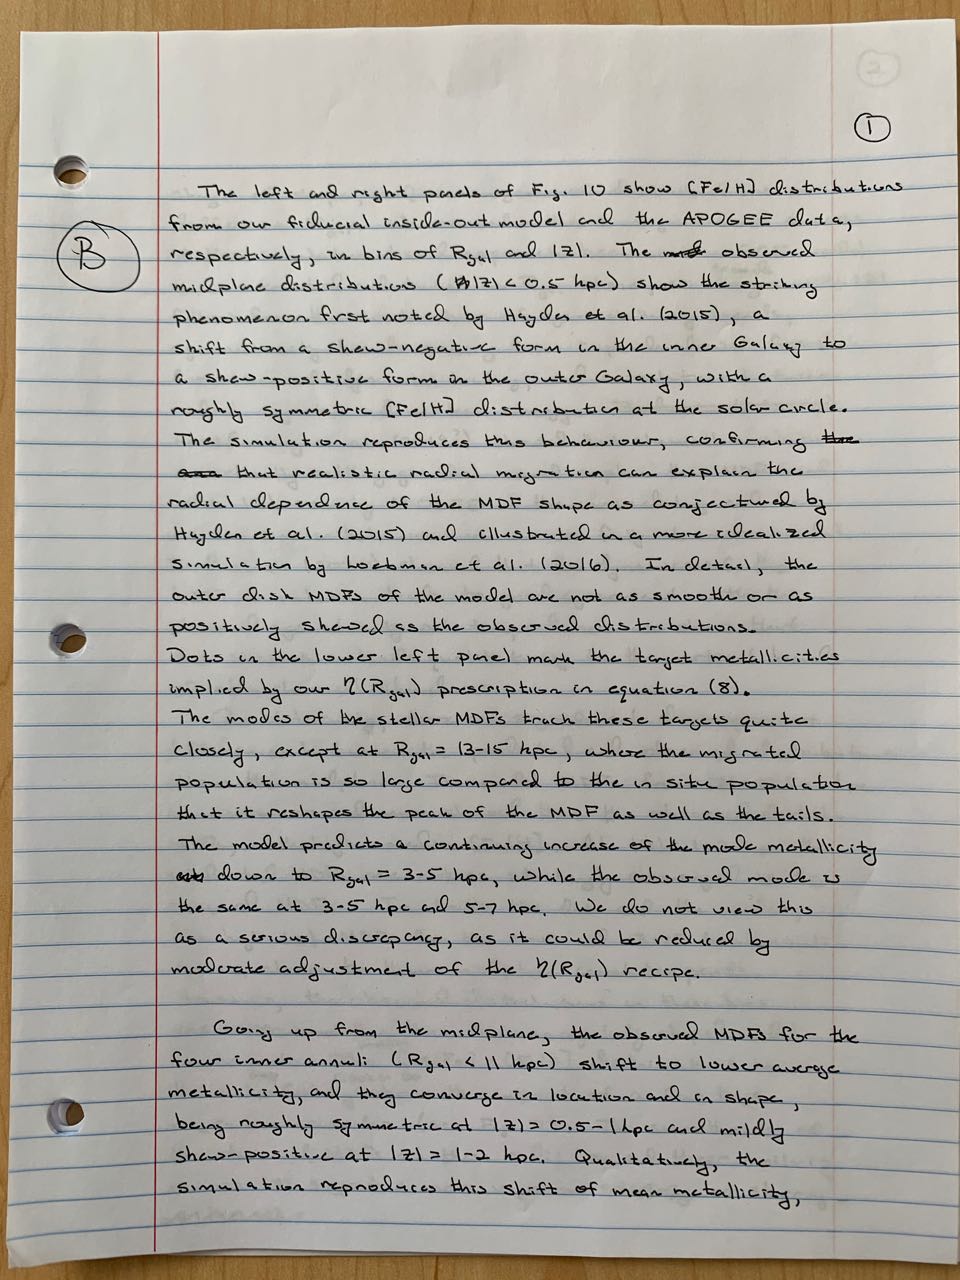 2
1
B
The left and right panels of Fig. 10 show [Fe/H] distributions
from our fiducial inside-out model and the APOGEE data,
respectively, in bins of Rgal and |z|. The observed
midplane distributions (|z| < 0.5 kpc) show the striking
phenomenon first noted by Hayden et al. (2015), a
shift from a skew-negative form in the inner Galaxy to
a skew-positive form in the outer Galaxy, with a
roughly symmetric [Fe/H] distribution at the solar circle.
The simulation reproduces this behaviour, confirming the
that realistic radial migration can explain the
radial dependence of the MDF shape as conjectured by
Hayden et al. (2015) and illustrated in a more idealized
simulation by Loebman et al. (2016). In detail, the
outer disk MDFs of the model are not as smooth or as
positively skewed as the observed distributions.
Dots in the lower left panel mark the target metallicities
implied by our η(Rgal) prescription in equation (8).
The modes of the stellar MDFs track these targets quite
closely, except at Rgal = 13-15 kpc, where the migrated
population is so large compared to the in situ population
that it reshapes the peak of the MDF as well as the tails.
The model predicts a continuing increase of the mode metallicity
down to Rgal = 3-5 kpc, while the observed mode is
the same at 3-5 kpc and 5-7 kpc. We do not view this
as a serious discrepancy, as it could be reduced by
moderate adjustment of the η(Rgal) recipe.
Going up from the midplane, the observed MDFs for the
four inner annuli (Rgal < 11 kpc) shift to lower average
metallicity, and they converge in location and in shape,
being roughly symmetric at |z| = 0.5-1 kpc and mildly
skew-positive at |z| = 1-2 kpc. Qualitatively, the
simulation reproduces this shift of mean metallicity,